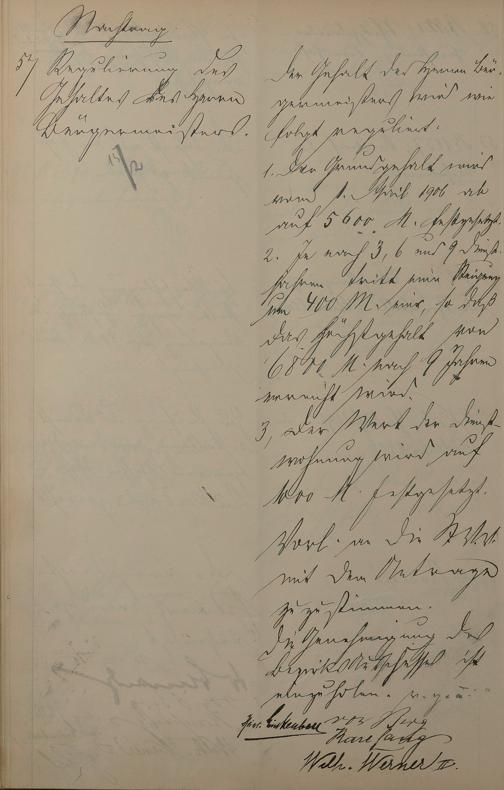 Nachtrag.
57/ Regulierung des
Gehaltes des Herrn
Bürgermeisters.
15/2
Der Gehalt des Herrn Bür-
germeisters wird wie
folgt reguliert.
1. Der Grundgehalt wird
vom 1. April 1906 ab
auf 5600 M. festgesetzt.
2. Je nach 3, 6 und 9 Dienst-
jahren tritt eine Steigerung
um 400 M. ein, so daß
das Höchstgehalt von
6800 M. nach 9 Jahren
erreicht wird.
3, Der Wert der Dienst-
wohnung wird auf
M. festgesetzt.
Vorl. an die St.V.V.
mit dem Antrage
zuzustimmen.
Die Genehmigung des
Bezirksausschusses ist
einzuholen. v. g. u.
von Berg
Karl Lang
Wilh. Werner II.